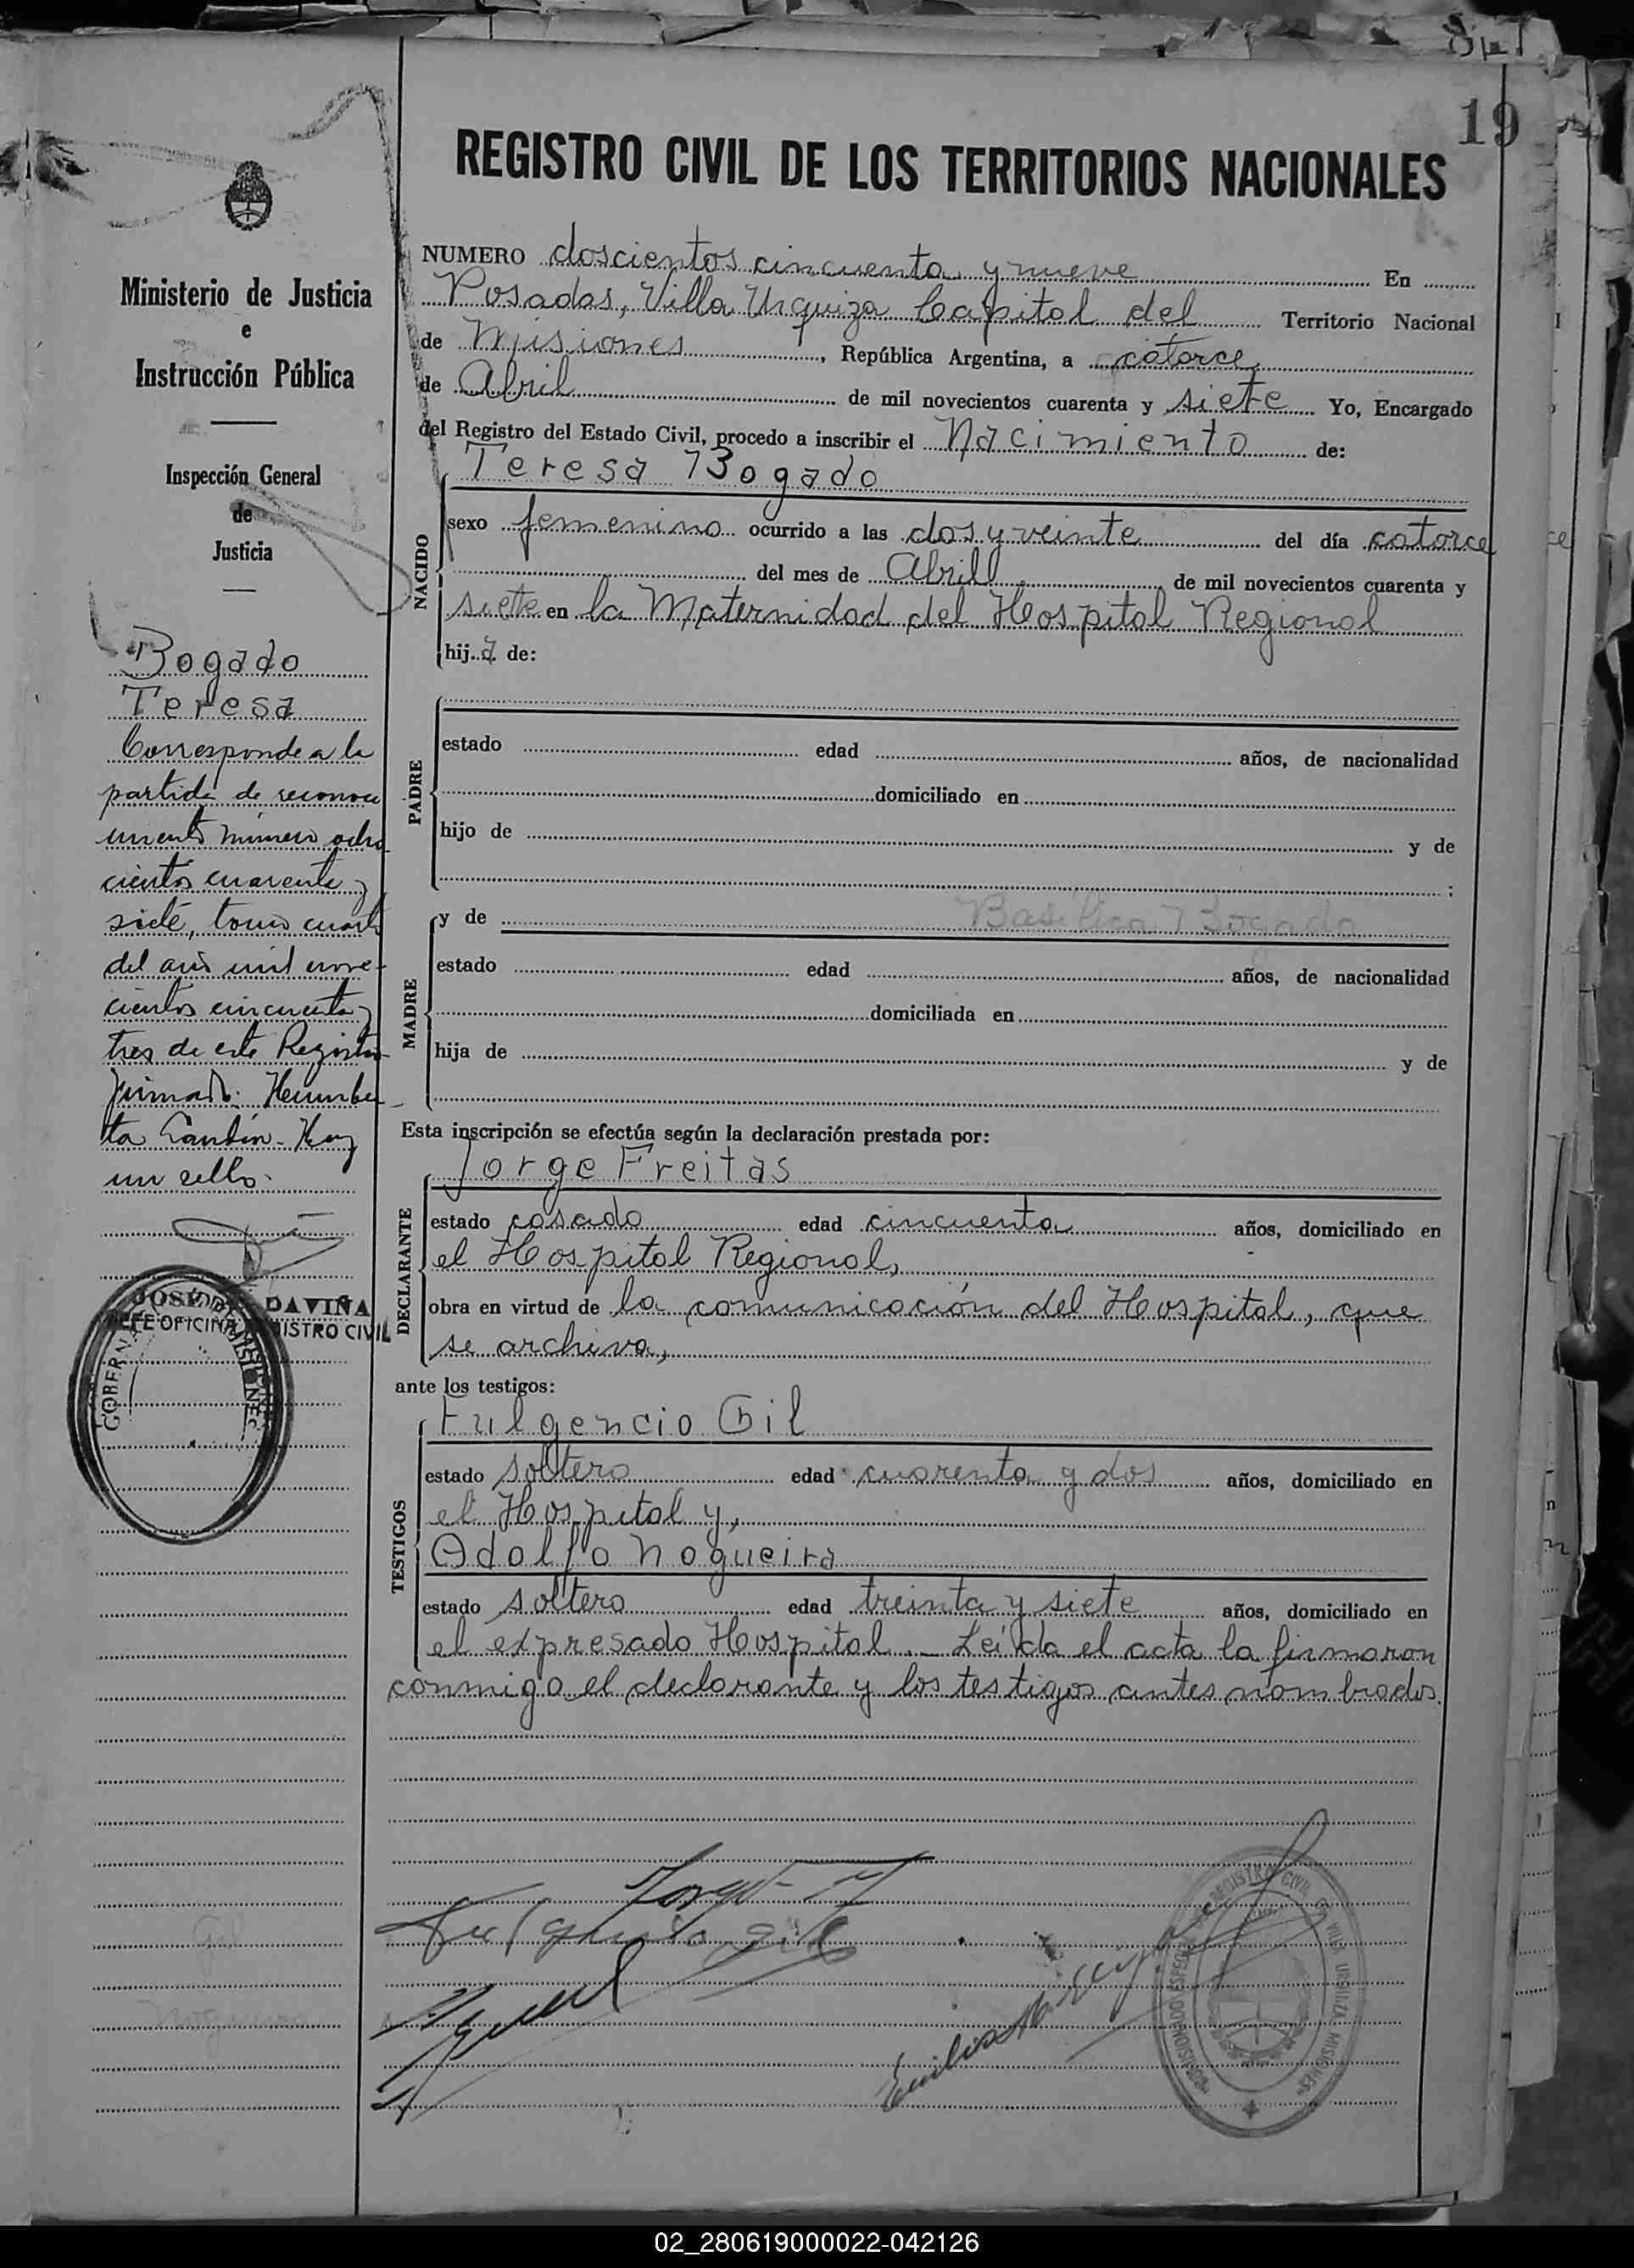 19
REGISTRO CIVIL DE LOS TERRITORIOS NACIONALES
Ministerio de Justicia
e
Instrucción Pública
Inspección General
de
Justicia
Bogado
Teresa
Corresponde a la
partida de reconoci
miento número ocho
cientos cuarenta y
siete, tomo cuarto
del año mil nove-
cientos cincuenta y
tres de este Registro
firmado: Humber
ta Hay
un sello.
JOSÉ DAVIÑA
JEFE OFICINA REGISTRO CIVIL
NUMERO doscientos cincuenta y nueve En
Posadas, Villa Urquiza Capital del Territorio Nacional
de Misiones, República Argentina, a catorce
de Abril de mil novecientos cuarenta y siete Yo, Encargado
del Registro del Estado Civil, procedo a inscribir el Nacimiento de:
Teresa Bogado
NACIDO
sexo femenino ocurrido a las dos y veinte del día catorce
del mes de Abril de mil novecientos cuarenta y
siete en la Maternidad del Hospital Regional
hija de:
PADRE
estado edad años, de nacionalidad
domiciliado en
hijo de y de
;
MADRE
y de Basilica Bogado
estado edad años, de nacionalidad
domiciliada en
hija de y de
Esta inscripción se efectúa según la declaración prestada por:
Jorge Freitas
DECLARANTE
estado casado edad cincuenta años, domiciliado en
el Hospital Regional,
obra en virtud de la comunicación del Hospital, que
se archiva,
ante los testigos:
Fulgencio Gil
TESTIGOS
estado soltero edad cuarenta y dos años, domiciliado en
el Hospital y,
Adolfo Nogueira
estado soltero edad treinta y siete años, domiciliado en
el expresado Hospital. _ Leída el acta la firmaron
conmigo el declarante y los testigos antes nombrados.
Gil
Nogueira
Fulgencio Gil
REGISTRO CIVIL DE VILLA URQUIZA MISIONES
COMISIONADO ESPECIAL
02_280619000022-042126